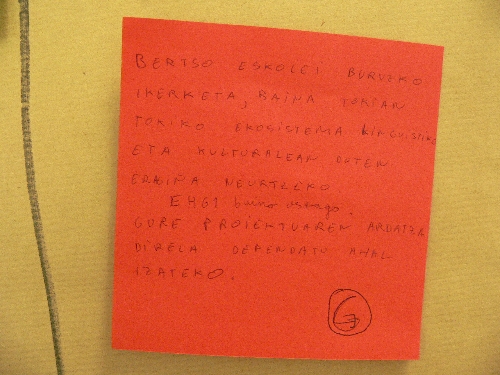 BERTSO ESKOLEI BURUZKO
IKERKETA, BAINA TOKIAN
TOKIKO EKOSISTEMA LINGUISTIKO
ETA KULTURALEAN DUTEN
ERAGINA NEURTZEKO
EHGI baino
GURE PROIEKTUAREN ARDATZA
DIRELA DEFENDATU AHAL
IZATEKO.
G